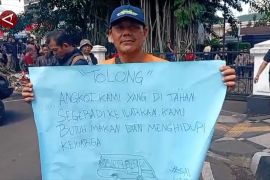 "TOLONG"
ANGKOT KAMI YANG DI TAHAN
SEGERA DI KELUARKAN KAMI
BUTUH MAKAN DAN MENGHIDUPI
KELUARGA